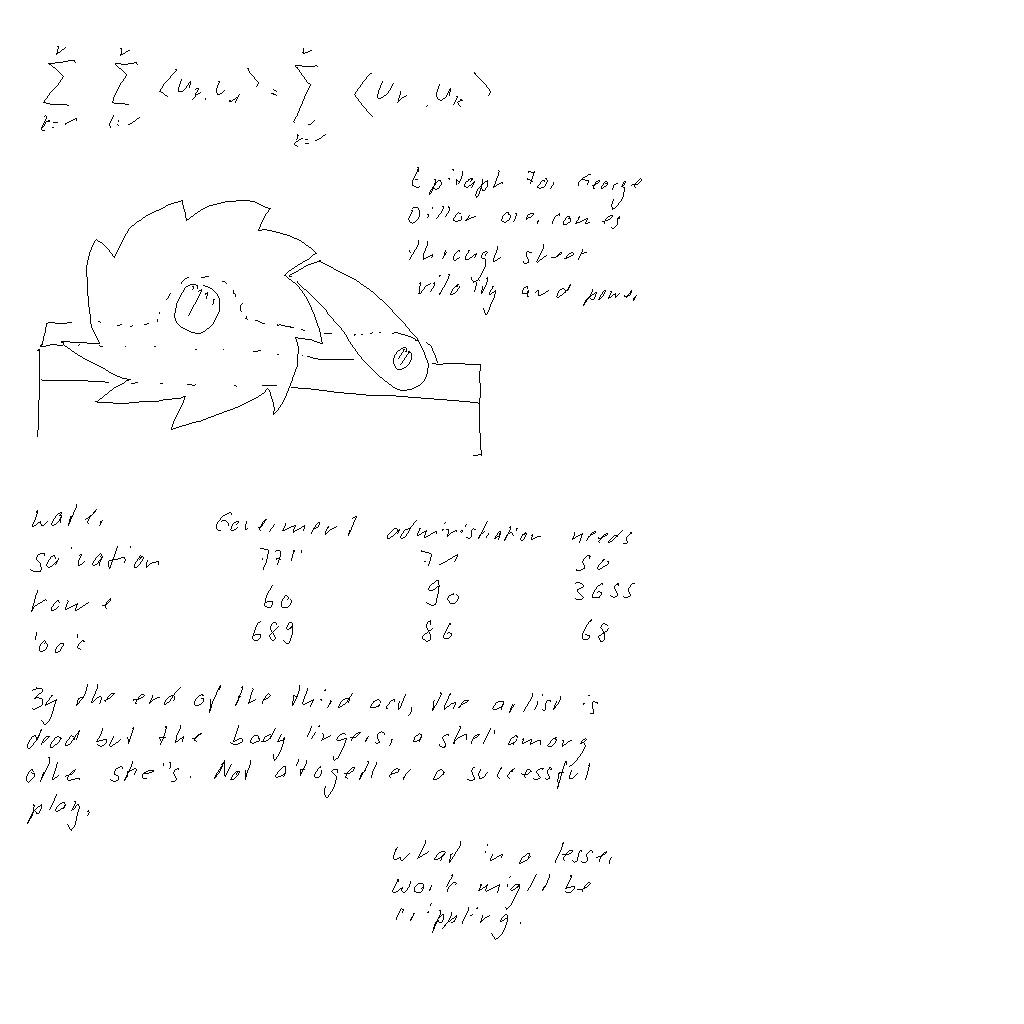 Epitaph for George
Dillon overcomes
through sheer
virility and power
water Government administration needs
sanitation 771 71 50
60 90 3655
689 86 68
By the end of the third act, the artist is
dead but the body lingers, a shell among
other shells. Not altogether a successful
play.
what in a lesser
work might be
crippling.